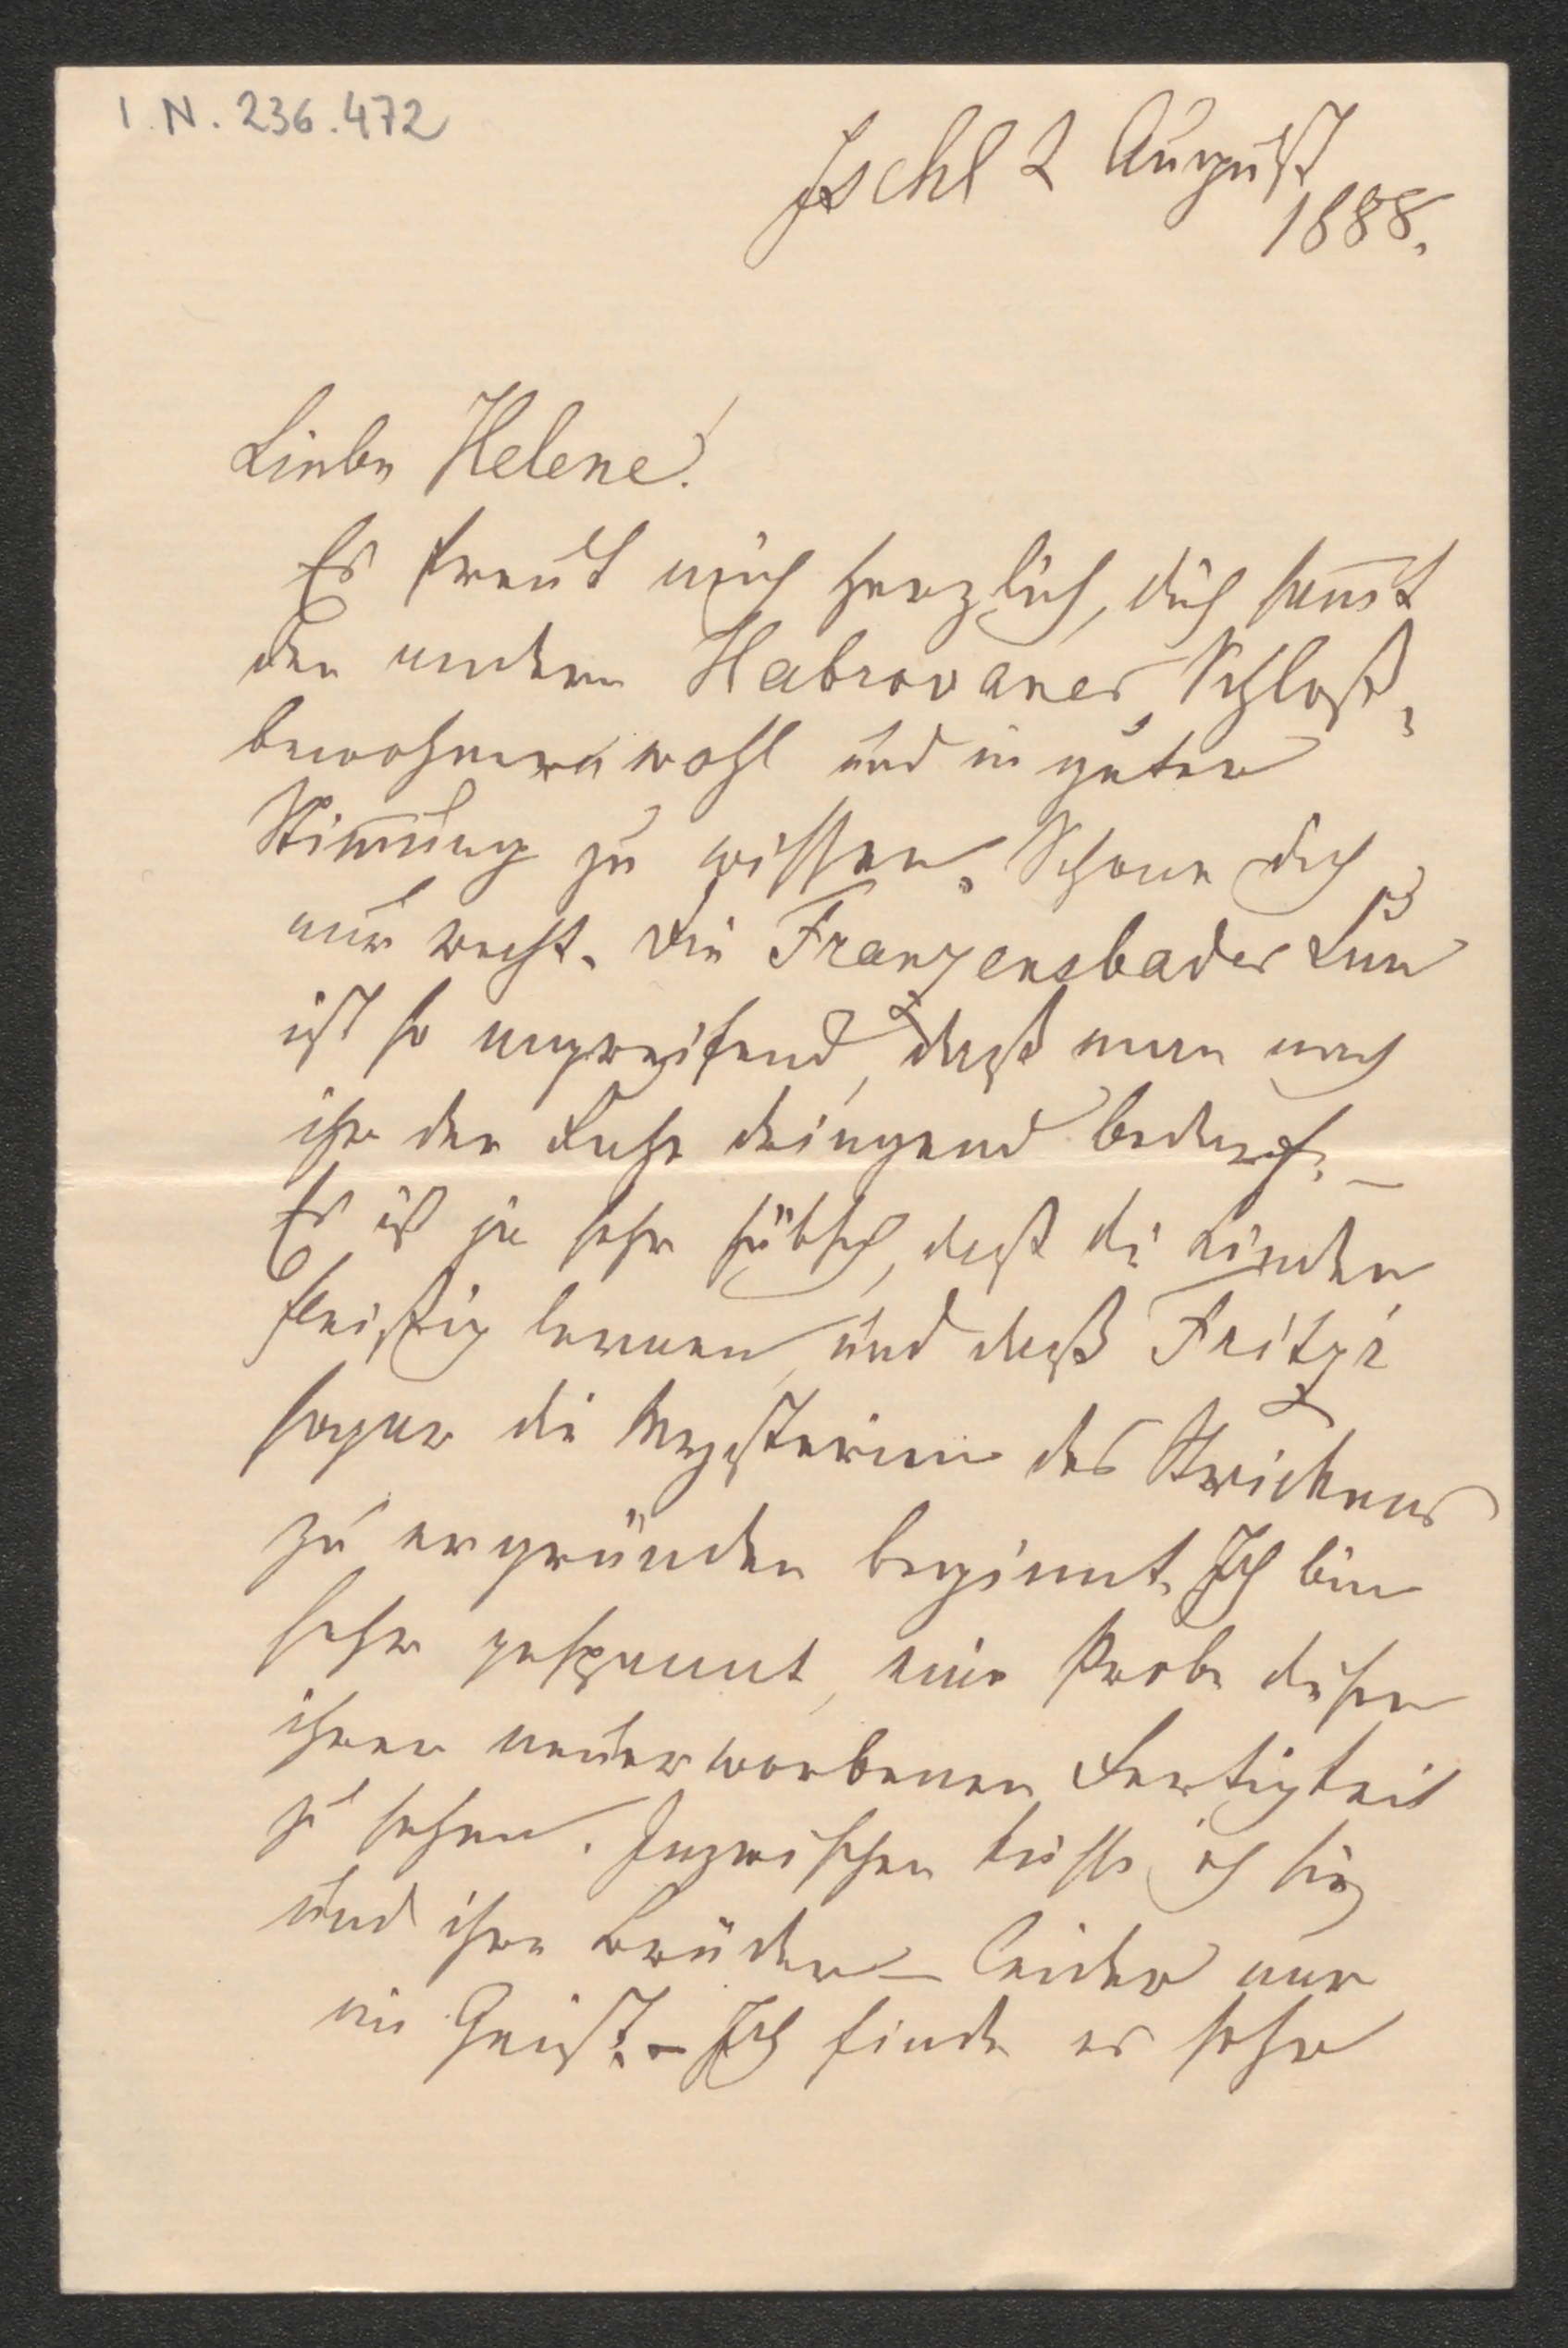 I.N. 236.472
Ischl 2 August
1888.
Liebe Helene!
Es freut mich herzlich, dich samt
den andern Habrovaner Schloß-
bewohnern wohl und in guter
Stimmung zu wissen. Schone dich
nur recht. Die Franzensbader Kur
ist so angreifend, daß man nach
ihr der Ruhe dringend bedarf. –
Es ist ja sehr hübsch, daß die Kinder
fleißig lernen, und daß Fritzi
sogar die Mysterien des Strickens
zu ergründen beginnt. Ich bin
sehr gespannt, eine Probe dieser
ihrer neuerworbenen Fertigkeit
zu sehen. Inzwischen küsse ich sie
und ihre Brüder – leider nur
im Geist. – Ich finde es sehr